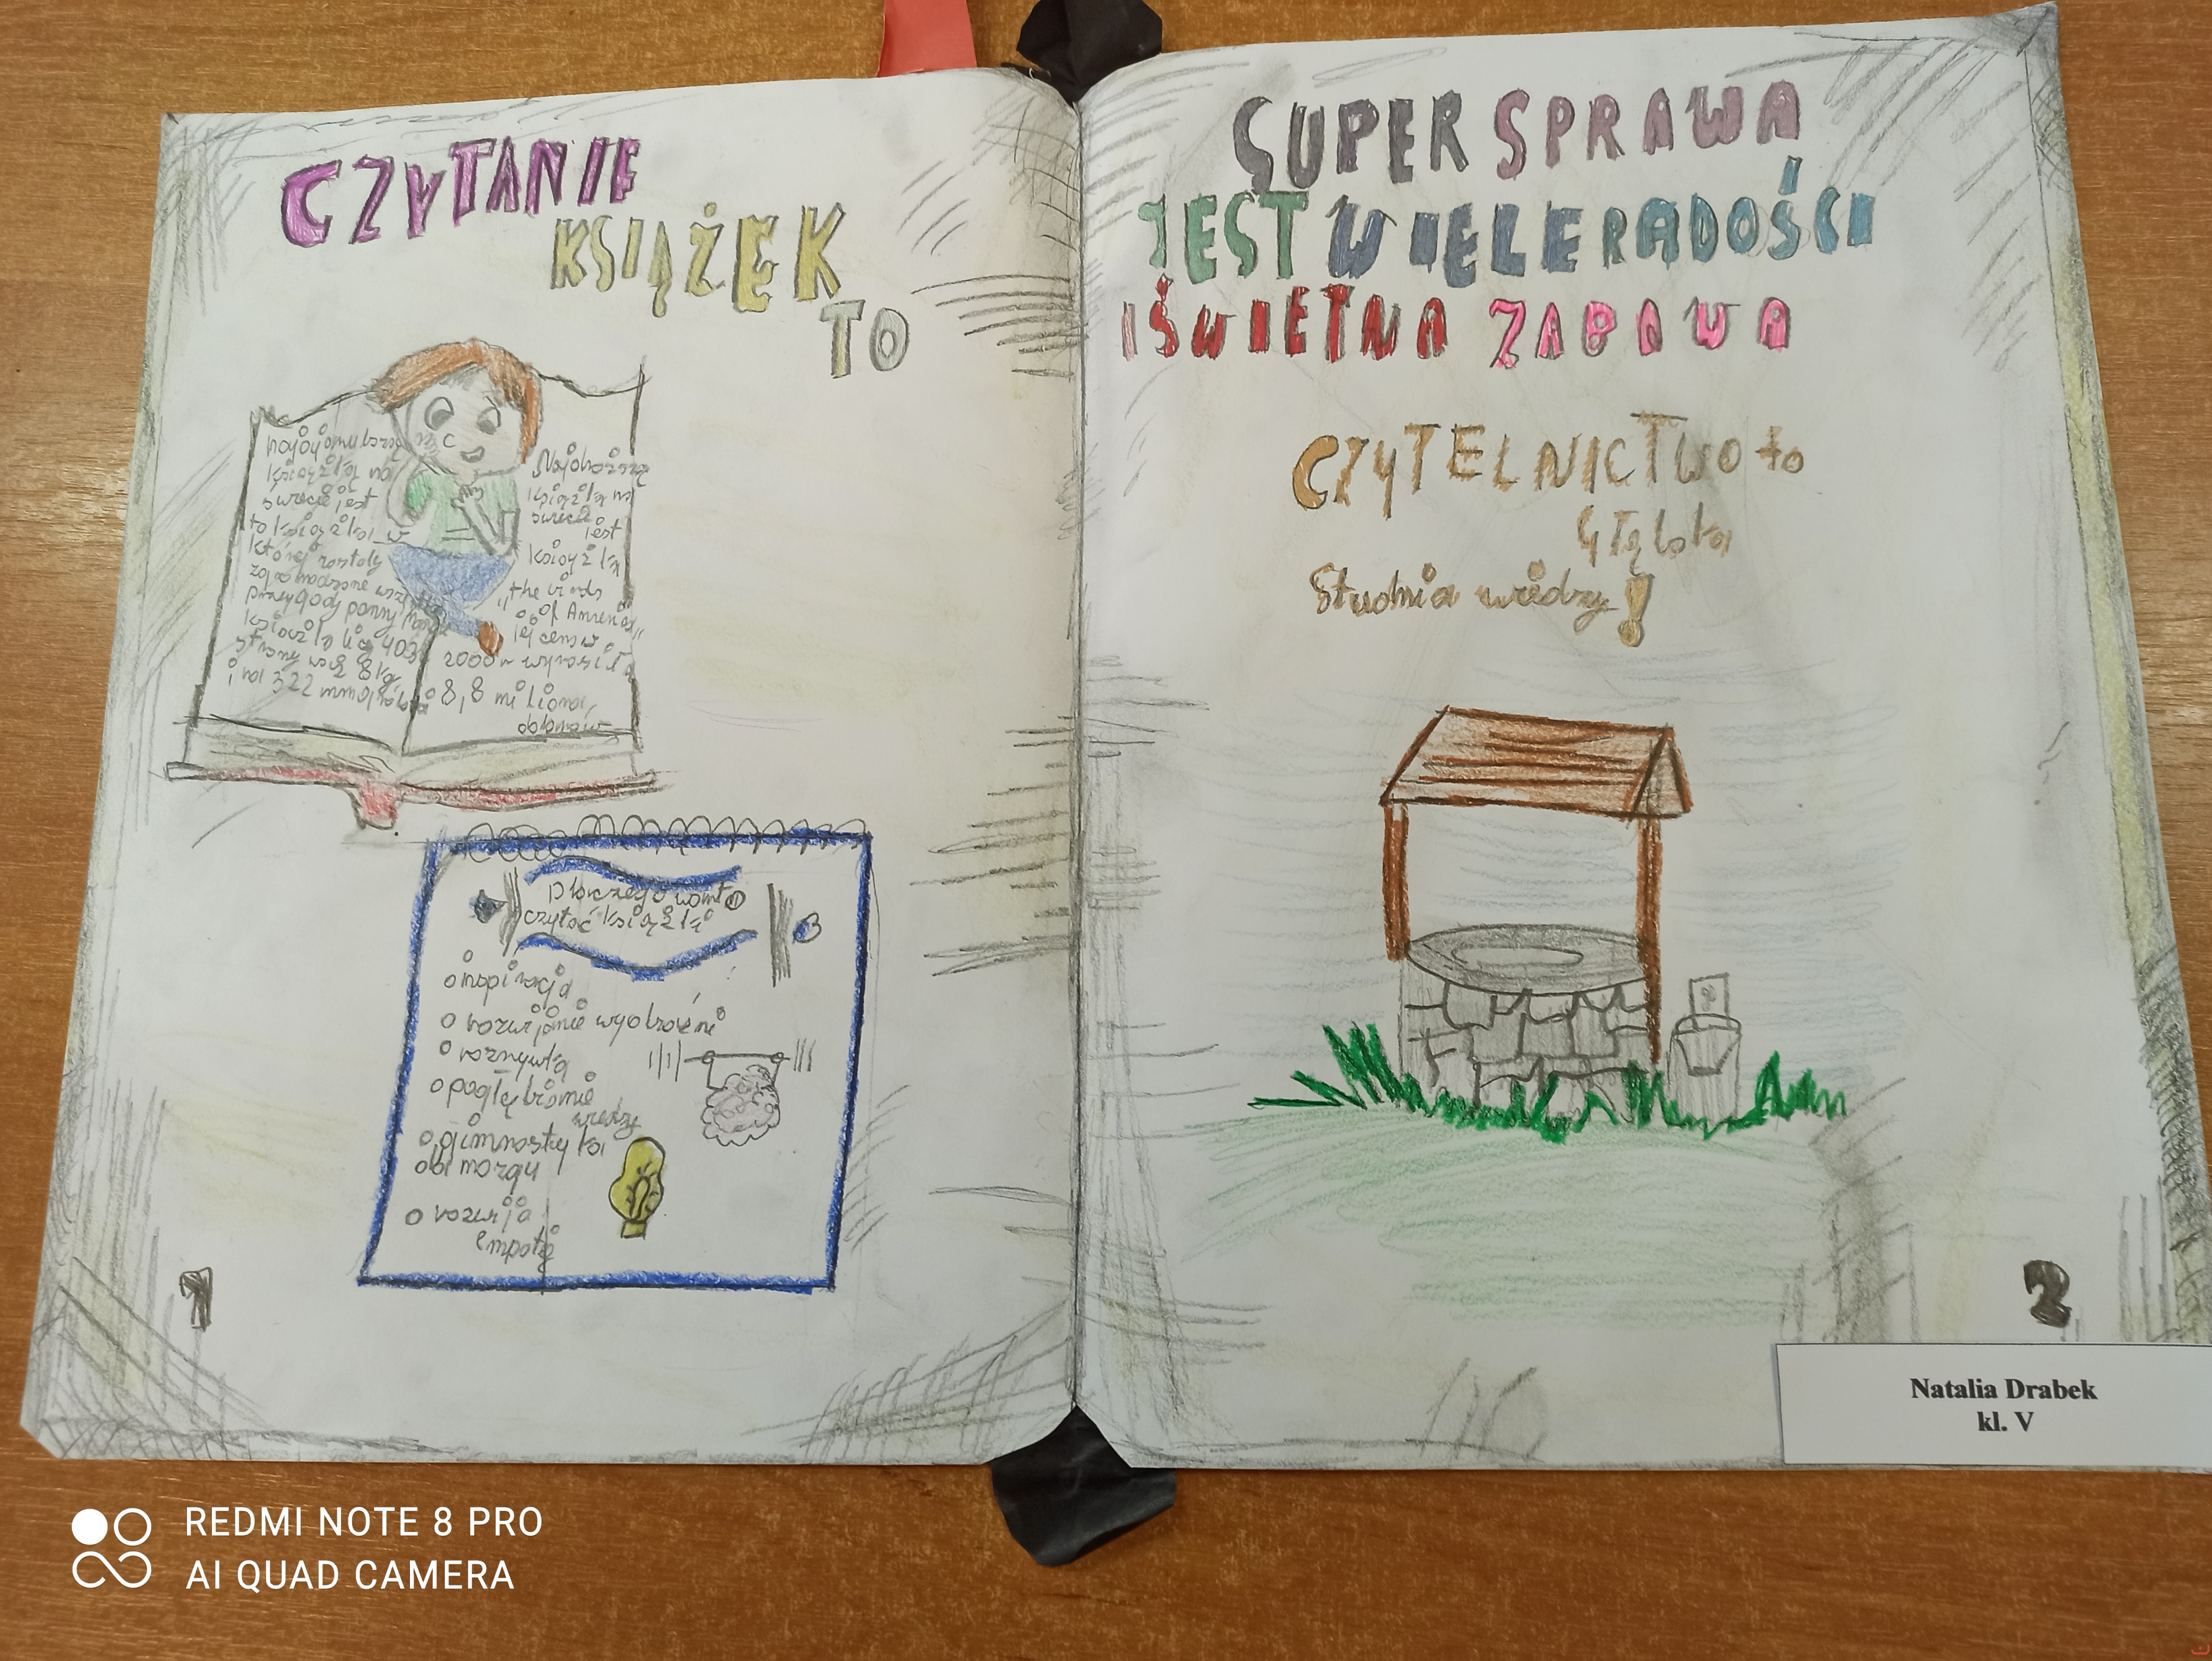 CZYTANIE
KSIĄŻEK
TO
książka na
świecie jest
to książka w
której zostały
przygody panny
książka liczy 403
strony waży 8kg
i na 322 mm
Najdroższą
książką na
świecie
jest
książka
"the Birds
of America"
jej cena w
2000r wynosiła
8,8 miliona
dolarów
Dlaczego warto
czytać książki
inspiracja
rozwijanie wyobraźni
rozrywka
pogłębianie
wiedzy
gimnastyka
dla mózgu
rozwija
empatię
1
SUPER SPRAWA
JEST WIELE RADOŚCI
I ŚWIETNA ZABAWA
CZYTELNICTWO to
Głęboka
Studnia wiedzy!
2
Natalia Drabek
kl. V
REDMI NOTE 8 PRO
AI QUAD CAMERA